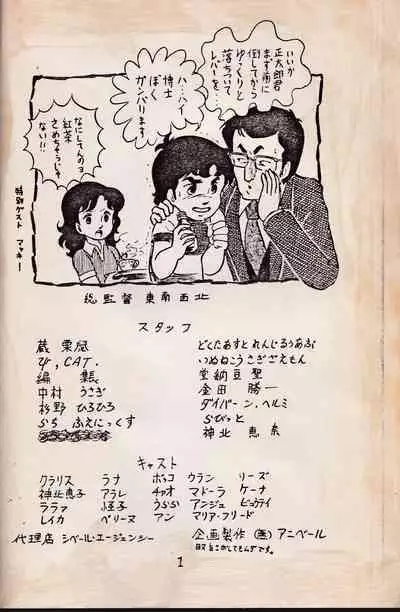 いいか
正太郎君
まず前に
倒してから
ゆっくりと
落ちついて
レバーを…
ハ…ハイ
博士
ぼく
ガンバります
なにしてんのョ
紅茶
さめちゃうじゃ
ない!!
特別ゲスト マッキー
総監督 東南西北
スタッフ
蔵 栗凪
Ψ, CAT.
編 集長
中村 うさぎ
杉野 ひろひろ
らち ふえにっくす
どくたあすと れんじろうあぶ
いぬねこうさぎさえもん
堂納豆 聖
金田 勝一
ダイバーン, ヘルミ
らびっと
神北 恵奈
キャスト
クラリス ラナ ポッコ ウラン リーズ
神北恵子 アラレ チャオ マドーラ ケーナ
ララァ 怪子 うらら アンジュ ビュウティ
レイカ ペリーヌ アン マリア・フリード
代理店 シベール・エージェンシー
企画製作 (無) アニベール
1